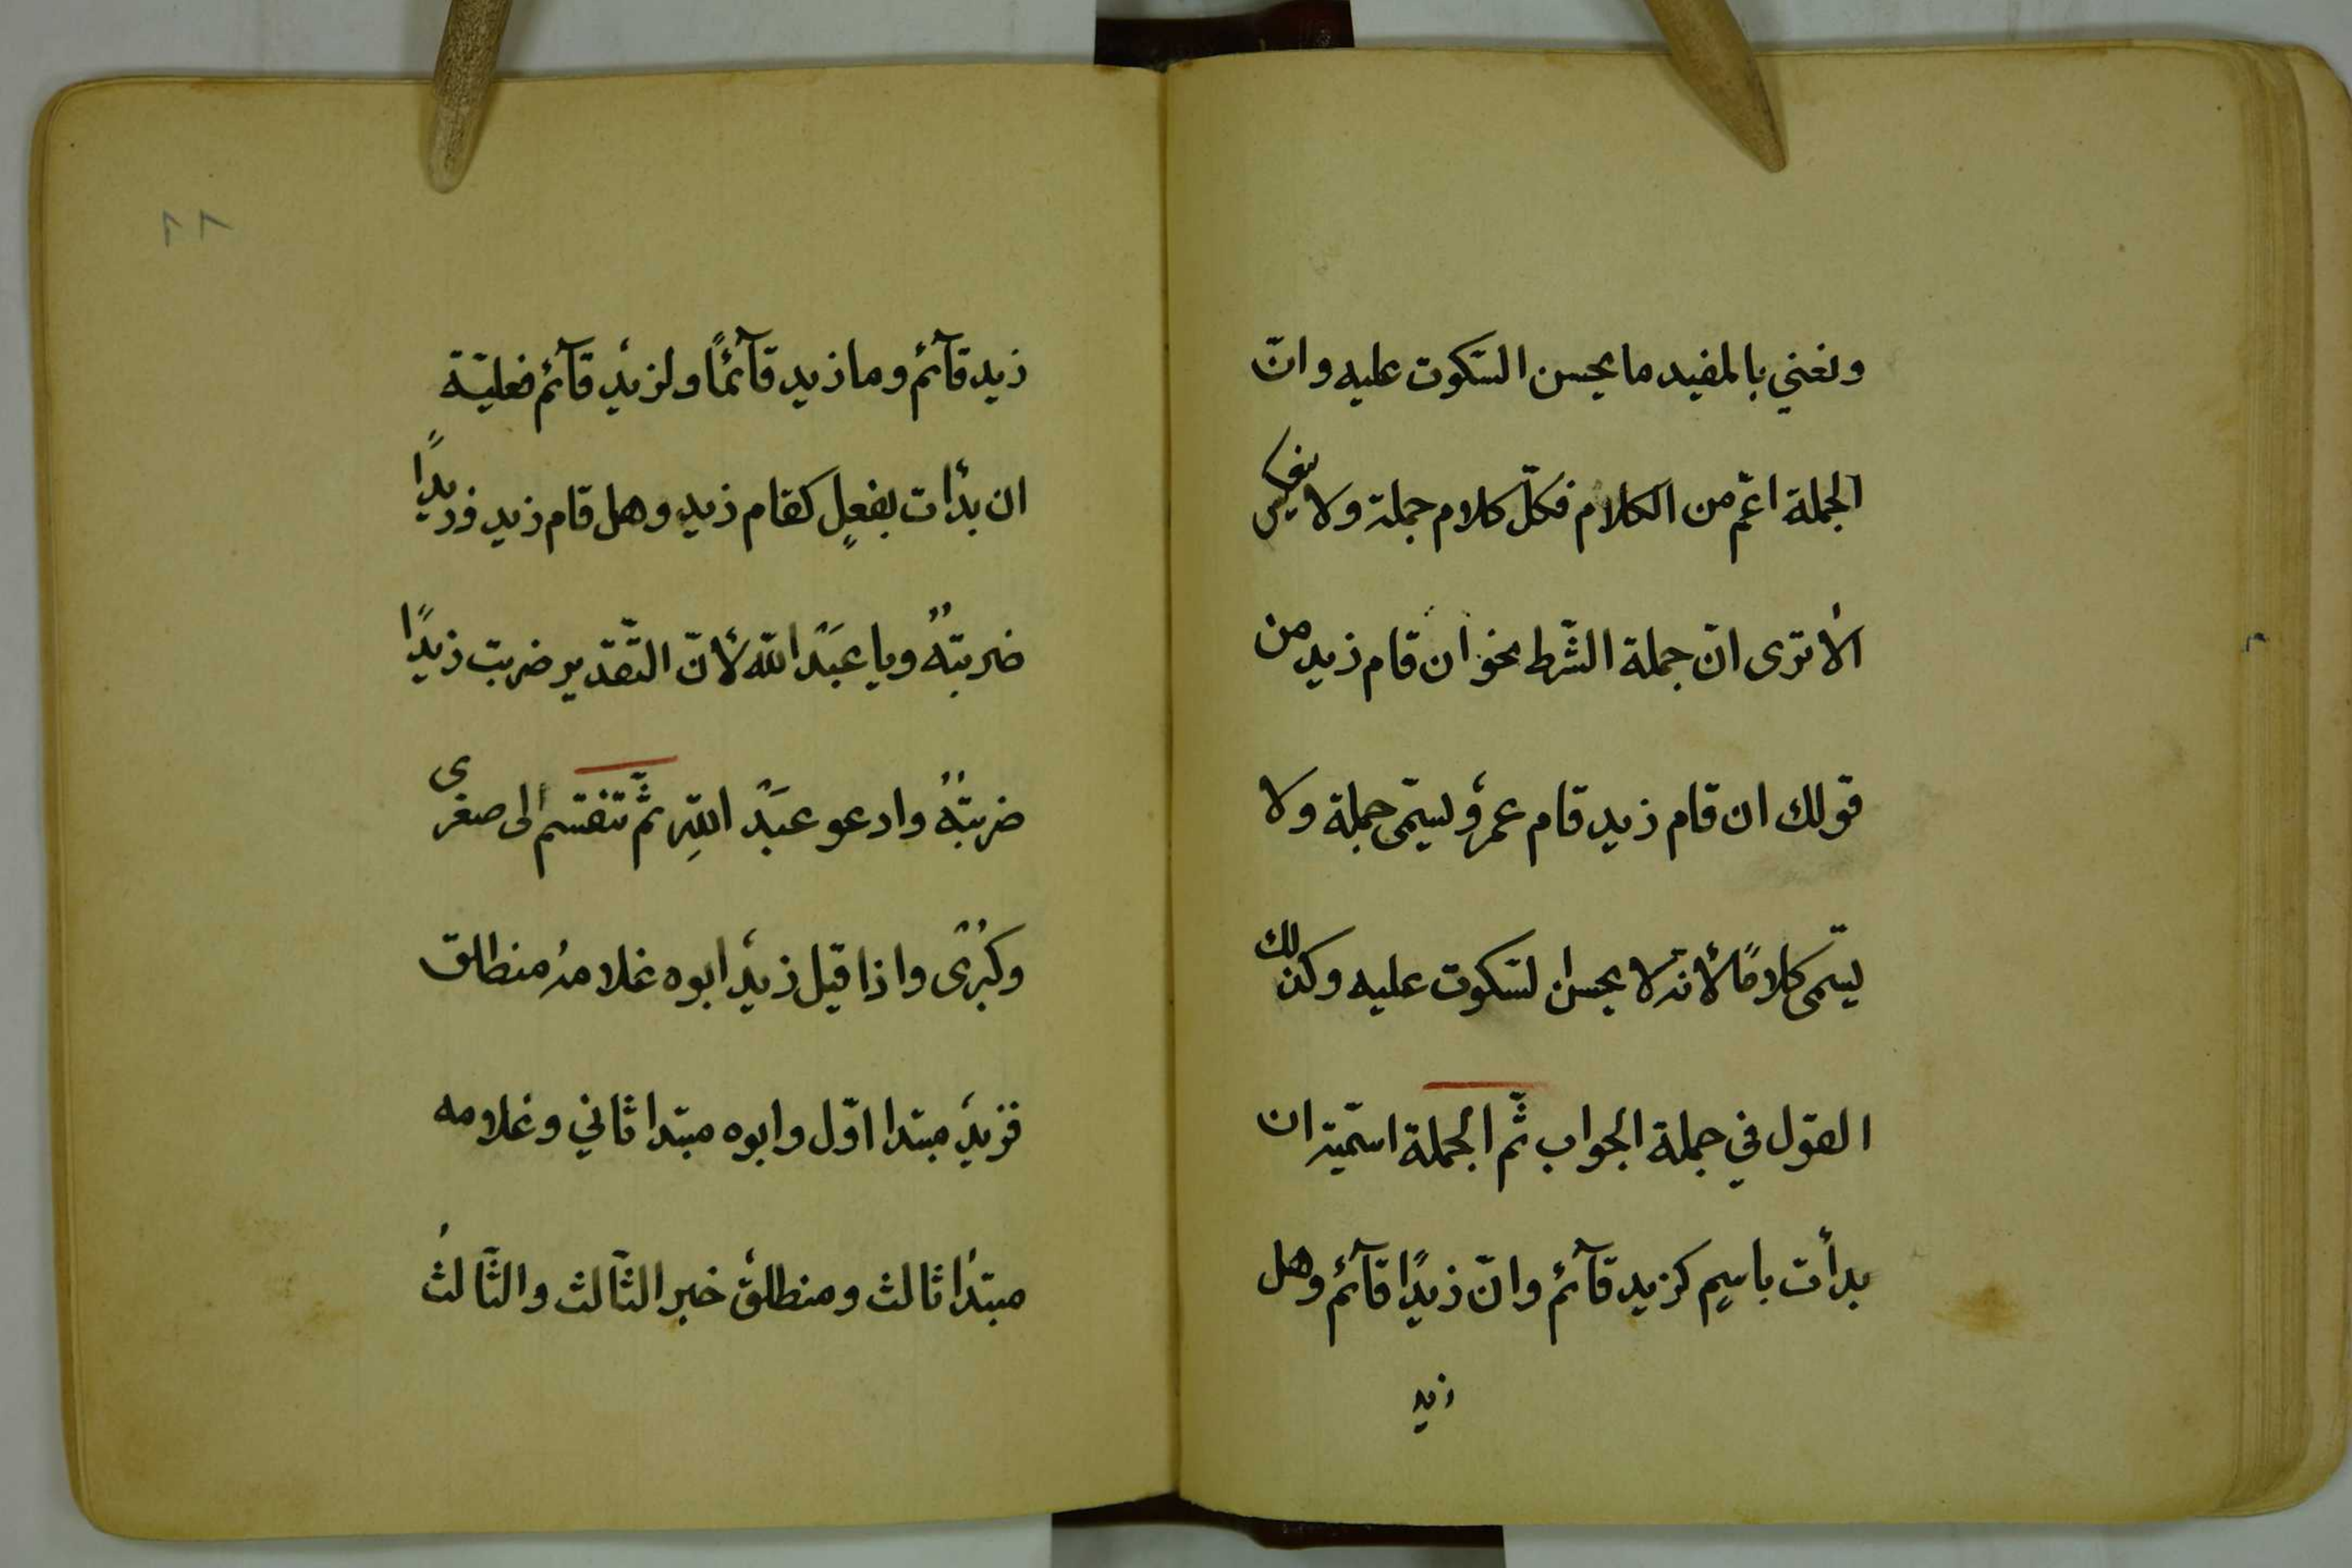 ونعني بالمفيد ما يحسن السّكوت عليه وانّ
الجملة اعمّ من الكلام فكلّ كلام جملة ولا ينعكس
الا ترى انّ جملة الشّرط نحو ان قام زيد من
قولك ان قام زيد قام عمرٌو يسمّى جملة ولا
يسّمى كلامًا لأنّه لا يحسن السّكوت عليه وكذلك
القول في جملة الجواب ثمّ الجملة اسميّة ان
بدأت باسمٍ كزيد قآئم وانّ زيدًا قآئم وهل
زيد
٢٨
زيد قآئم وما زيد قآئمًا ولزيدٌ قآئم فعليّة
ان بدأت بفعلٍ كقام زيد وهل قام زيد وزيدًا
ضربتهُ ويا عبدَ الله لأنّ التّقدير ضربت زيدًا
ضربتهُ وادعو عبدَ اللهِ ثمّ تنقسم الى صغرى
وكُبْرى واذا قيل زيدٌ ابوه غلامهُ منطلق
فزيدٌ مبتدا اوّل وابوه مبتدا ثاني وغلامه
مبتدأ ثالث ومنطلقٌ خبر الثّالث والثّالثُ